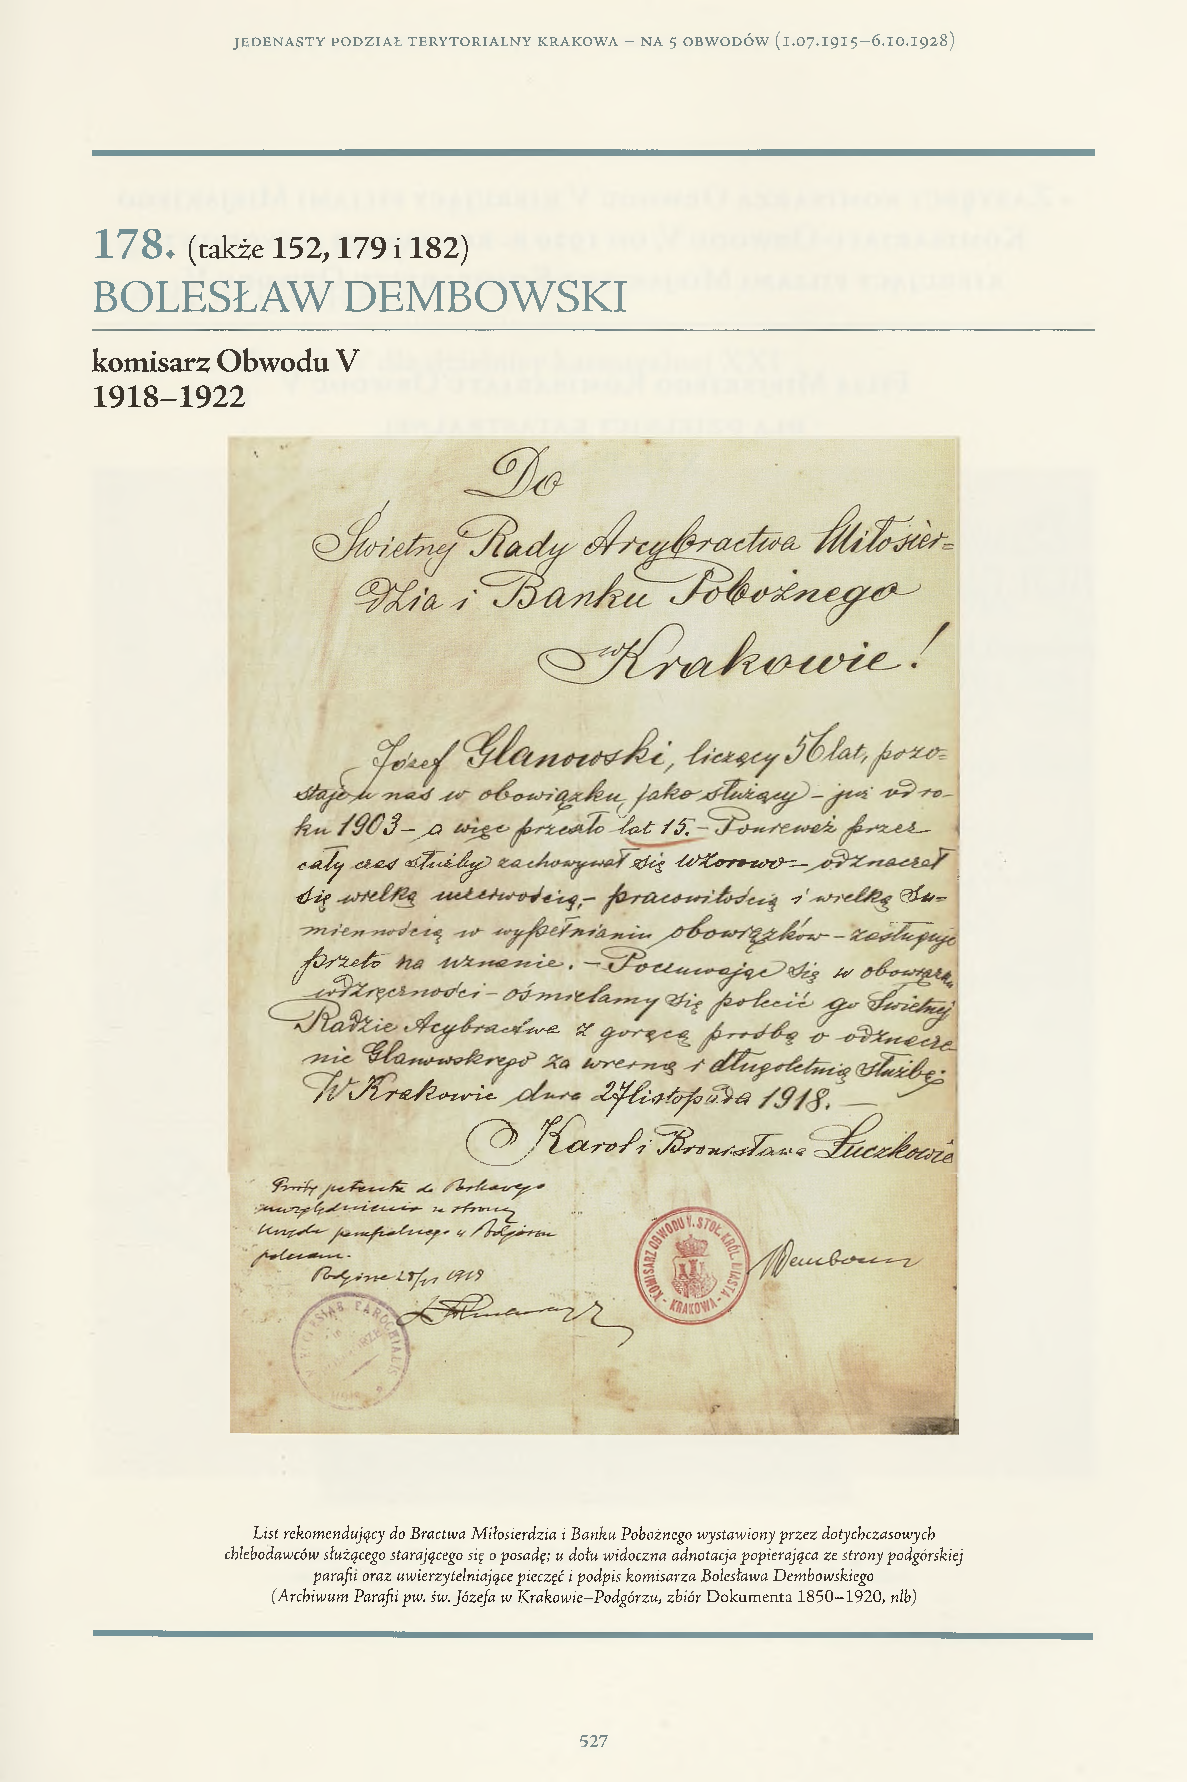 JEDENASTY PODZIAŁ TERYTORIALNY KRAKOWA – NA 5 OBWODÓW (1.07.1915–6.10.1928)
178. (także 152, 179 i 182)
BOLESŁAW DEMBOWSKI
komisarz Obwodu V
1918–1922
Do
Świetnej Rady Arcybractwa Miłosier=
dzia i Banku Pobożnego
w Krakowie!
Józef Glanowski, liczący 56 lat, pozo=
staje u nas w obowiązku, jako służący – już od ro-
ku 1903 – a więc przeszło lat 15. – Ponieważ przez
cały czas służby zachowywał się wzorowo – odznaczał
się wielką uczciwością, – pracowitością i wielką su=
miennością w wypełnianiu obowiązków – zasługuje
przeto na uznanie. – Poczuwając się w obowiązku
wdzięczności – ośmielamy się polecić go Świetnej
Radzie Acybractwa z gorącą prośbą o odznacze
nie Glanowskiego za wierną i długoletnią służbę.
W Krakowie dnia 27 listopada 1918. —
Karol i Bronisława Łuczkowie
Prośbę petenta do łaskawego
uwzględnienia ze strony
Urzędu parafialnego w Podgórzu
polecam.
Podgórze 28/11 1918
KOMISARZ OBWODU V. STOŁ. KRÓL. MIASTA
- KRAKOWA -
Dembowski
List rekomendujący do Bractwa Miłosierdzia i Banku Pobożnego wystawiony przez dotychczasowych
chlebodawców służącego starającego się o posadę; u dołu widoczna adnotacja popierająca ze strony podgórskiej
parafii oraz uwierzytelniające pieczęć i podpis komisarza Bolesława Dembowskiego
(Archiwum Parafii pw. św. Józefa w Krakowie–Podgórzu, zbiór Dokumenta 1850–1920, nlb)
527